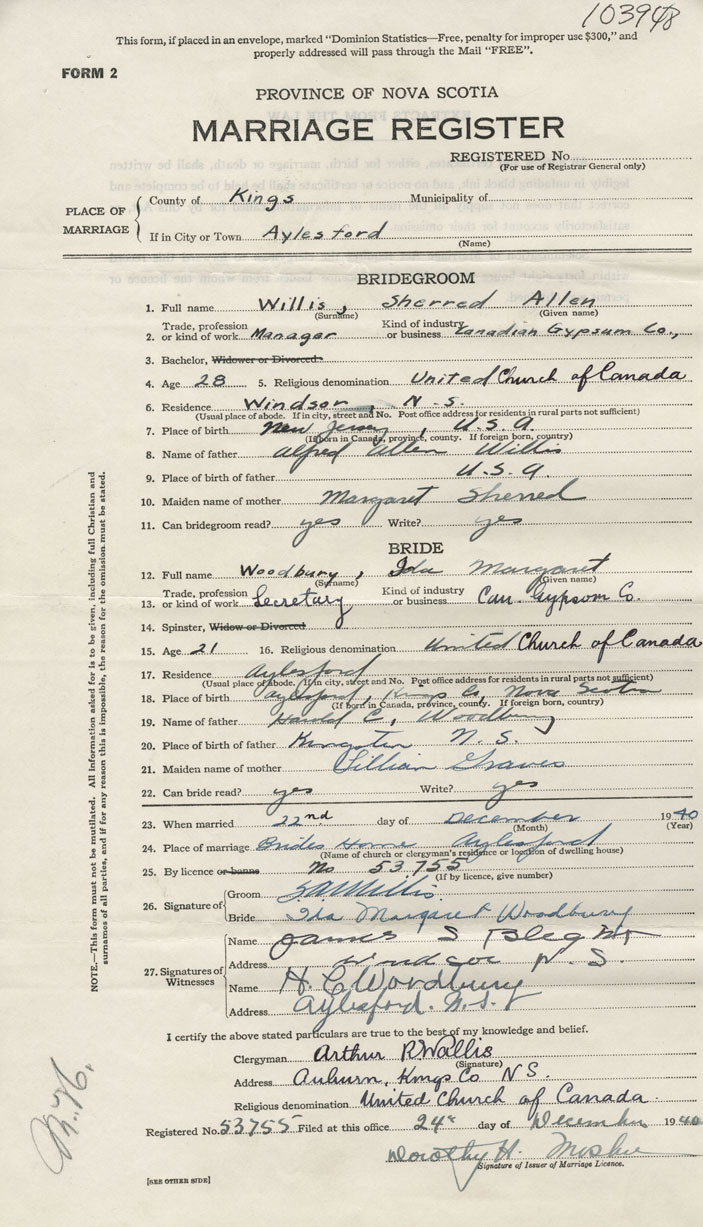 103948
This form, if placed in an envelope, marked "Dominion Statistics—Free, penalty for improper use $300," and
properly addressed will pass through the Mail "FREE".
FORM 2
PROVINCE OF NOVA SCOTIA
MARRIAGE REGISTER
REGISTERED No.
(For use of Registrar General only)
PLACE OF MARRIAGE
County of Kings Municipality of
If in City or Town Aylesford
(Name)
BRIDEGROOM
1. Full name Willis, Sherred Allen
(Surname) (Given name)
2. Trade, profession or kind of work Manager Kind of industry or business Canadian Gypsum Co.,
3. Bachelor, Widower or Divorced
4. Age 28 5. Religious denomination United Church of Canada
6. Residence Windsor, N.S.
(Usual place of abode. If in city, street and No. Post office address for residents in rural parts not sufficient)
7. Place of birth New Jersey, U.S.A.
(If born in Canada, province, county. If foreign born, country)
8. Name of father Alfred Allen Willis
9. Place of birth of father U.S.A.
10. Maiden name of mother Margaret Sherred
11. Can bridegroom read? yes Write? yes
BRIDE
12. Full name Woodbury, Ida Margaret
(Surname) (Given name)
13. Trade, profession or kind of work Secretary Kind of industry or business Can. Gypsom Co.
14. Spinster, Widow or Divorced
15. Age 21 16. Religious denomination United Church of Canada
17. Residence Aylesford
(Usual place of abode. If in city, street and No. Post office address for residents in rural parts not sufficient)
18. Place of birth Aylesford, Kings Co, Nova Scotia
(If born in Canada, province, county. If foreign born, country)
19. Name of father Harold C, Woodbury
20. Place of birth of father Kingston N.S.
21. Maiden name of mother Lillian Graves
22. Can bride read? yes Write? yes
23. When married 22nd day of December 1940
(Month) (Year)
24. Place of marriage Brides Home Aylesford
(Name of church or clergyman's residence or location of dwelling house)
25. By licence or banns No 53755
(If by licence, give number)
26. Signature of
Groom S.A. Willis.
Bride Ida Margaret Woodbury
27. Signatures of Witnesses
Name James S
Address Windsor N.S.
Name H. C. Woodbury
Address Aylesford. N.S.
I certify the above stated particulars are true to the best of my knowledge and belief.
Clergyman Arthur R Wallis
(Signature)
Address Auburn, Kings Co N S.
Religious denomination United Church of Canada.
Registered No. 53755 Filed at this office 24 day of December 1940
Dorothy H. Mosher
Signature of Issuer of Marriage Licence.
[SEE OTHER SIDE]
NOTE.—This form must not be mutilated. All information asked for is to be given, including full Christian and
surnames of all parties, and if for any reason this is impossible, the reason for the omission must be stated.